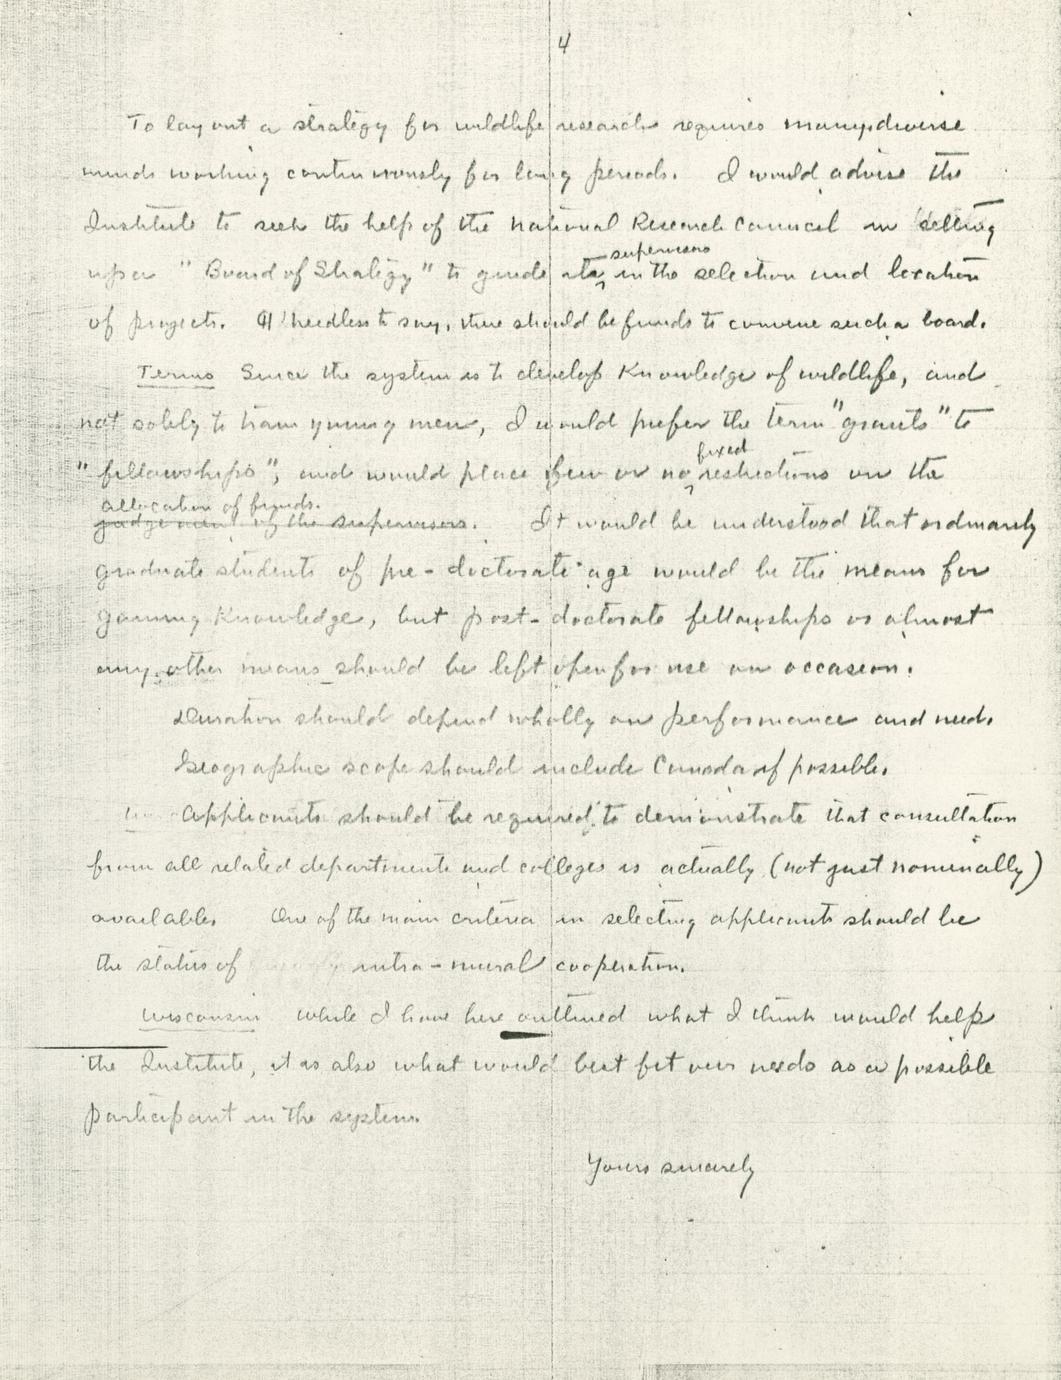 4
To lay out a strategy for wildlife research requires many diverse
minds working continuously for long periods. I would advise the
Institute to seek the help of the National Research Council in setting
up a "Board of Strategy" to guide its supervisors in the selection and location
of projects. Needless to say, there should be funds to convene such a board.
Terms Since the system is to develop knowledge of wildlife, and
not solely to train young men, I would prefer the term "grants" to
"fellowships", and would place few or no fixed restrictions on the
allocation of funds.
judgement of the supervisors. It would be understood that ordinarily
graduate students of pre-doctorate age would be the means for
gaining knowledge, but post-doctorate fellowships or almost
any other means should be left open for use on occasion.
Duration should depend wholly on performance and need.
Geographic scope should include Canada if possible.
Applicants should be required to demonstrate that consultation
from all related departments and colleges is actually (not just nominally)
available. One of the main criteria in selecting applicants should be
the status of intra-mural cooperation.
Wisconsin While I have here outlined what I think would help
the Institute, it is also what would best fit our needs as a possible
participant in the system.
Yours sincerely